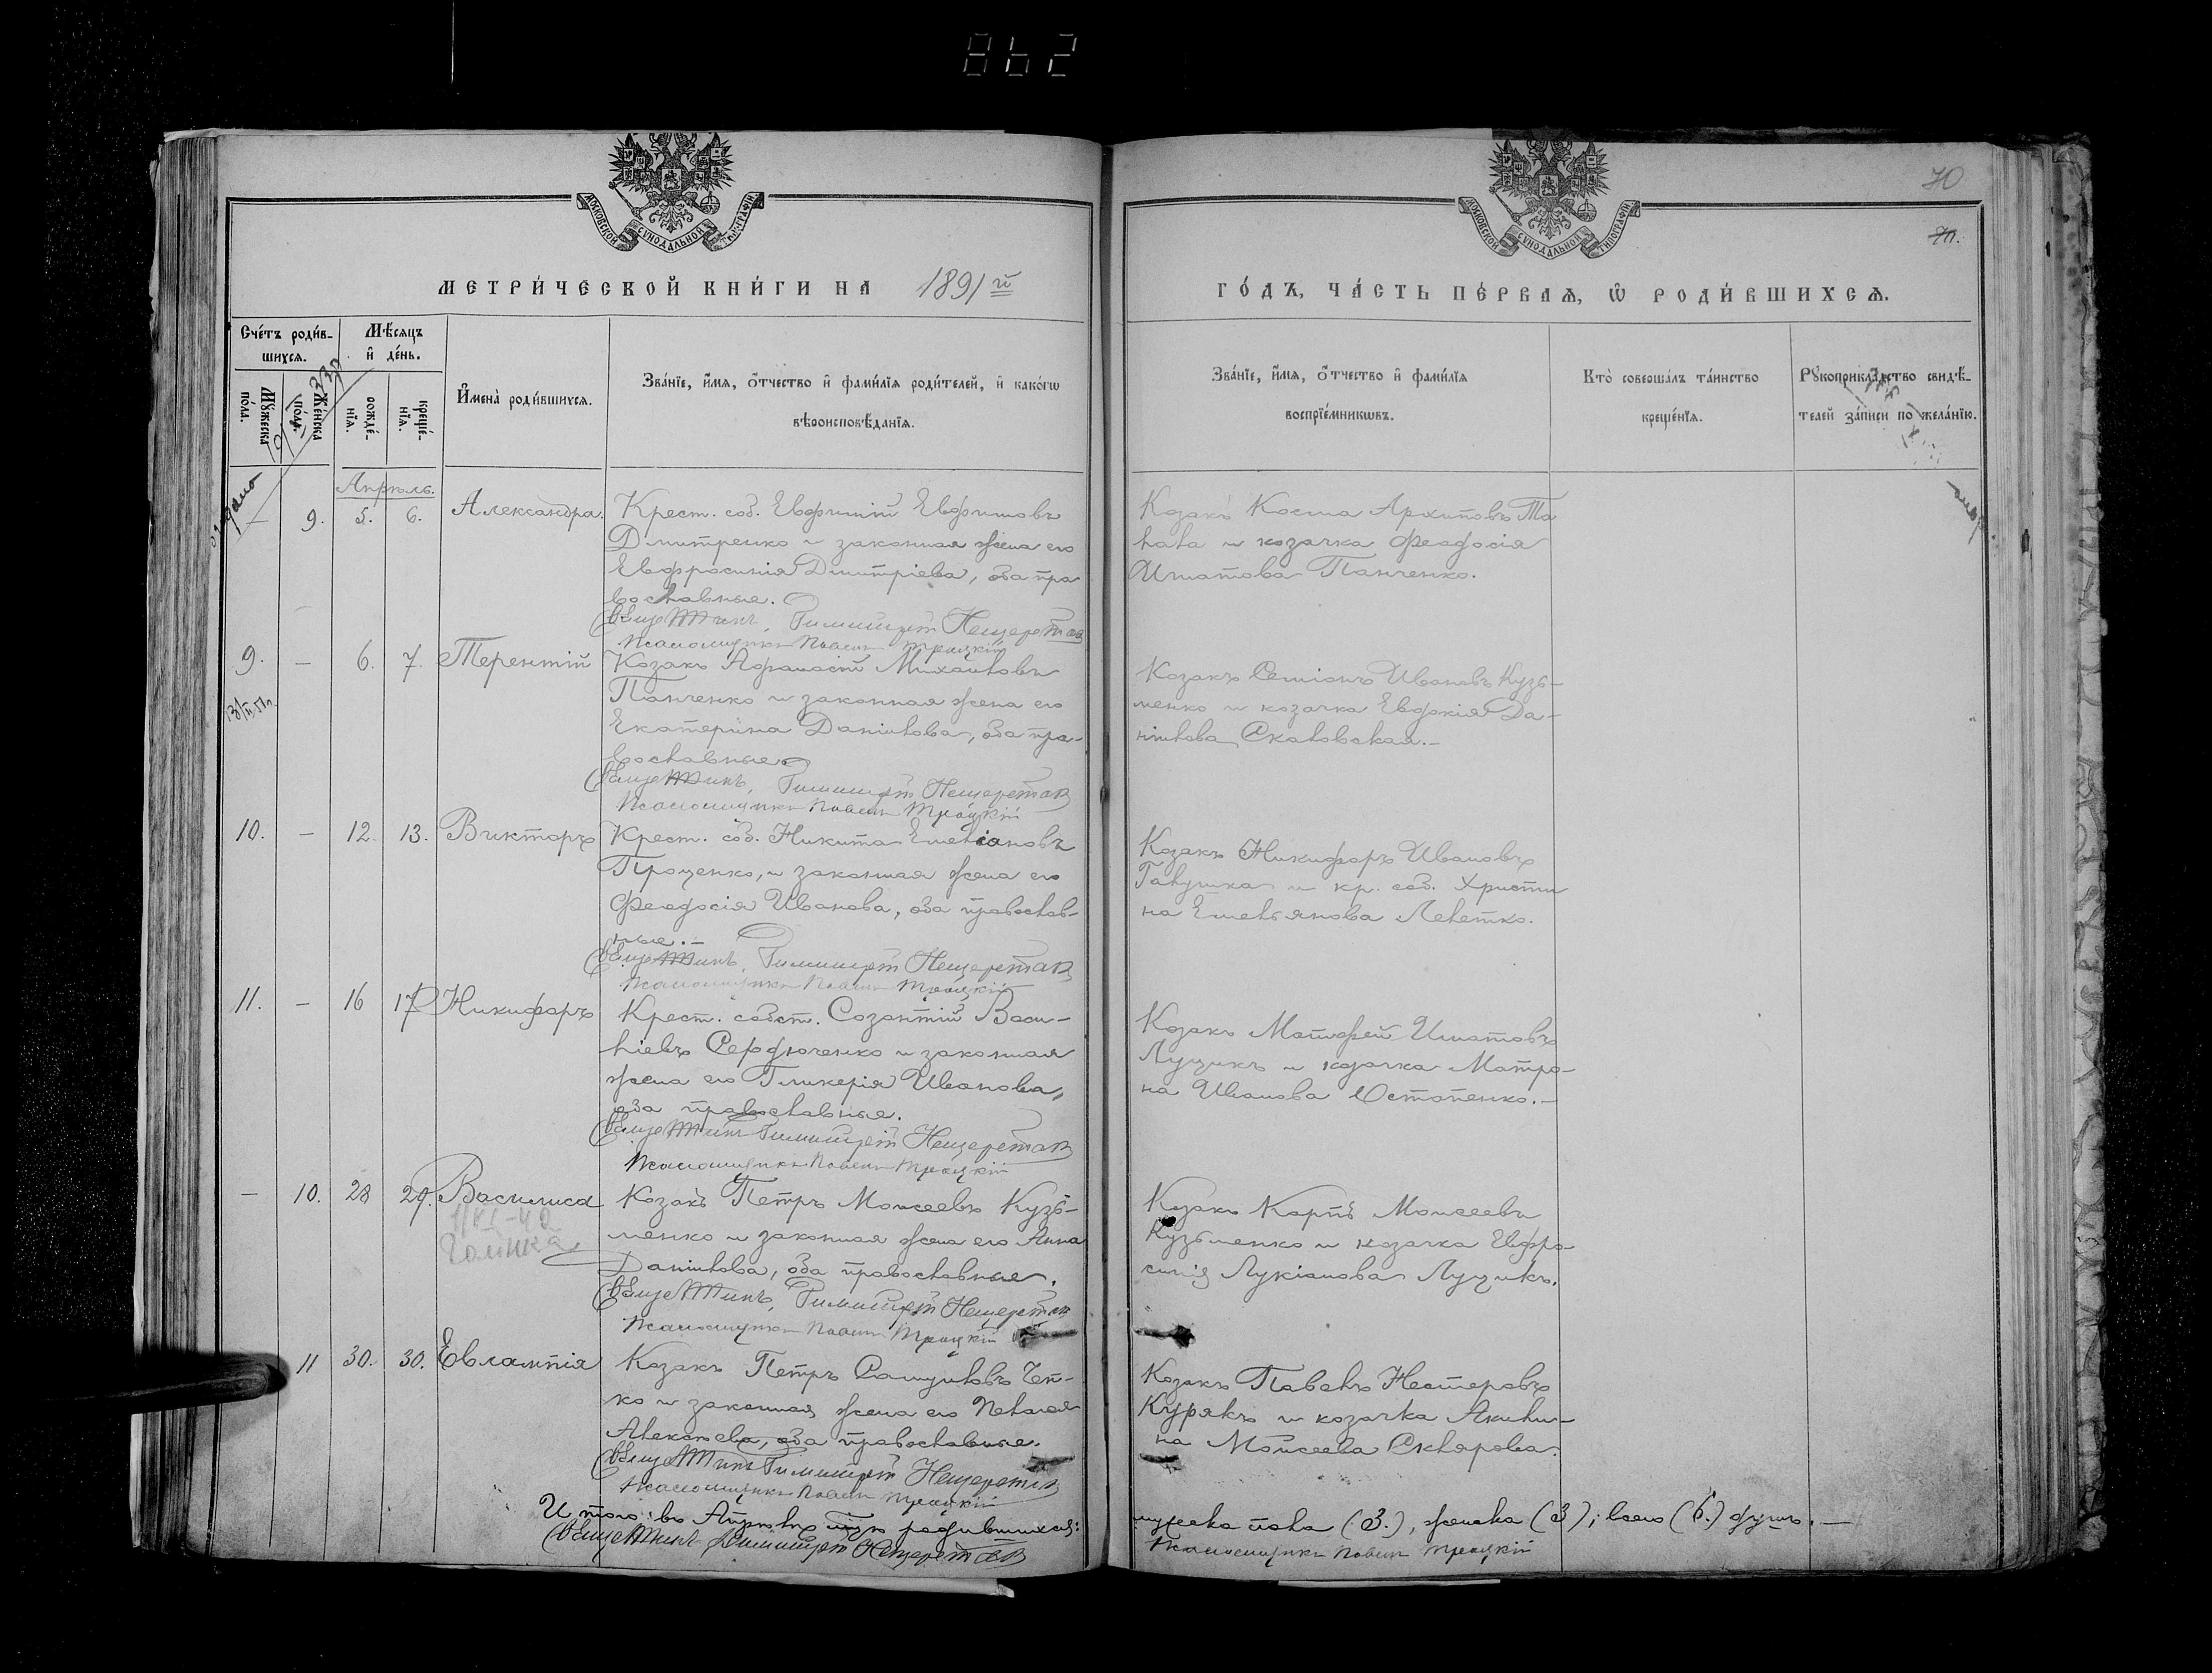 862
70
70.
МОСКОВСКОЙ СУНОДАЛЬНОЙ ТИПОГРАФІИ
МОСКОВСКОЙ СУНОДАЛЬНОЙ ТИПОГРАФІИ
МЕТРИ́ЧЕСКОЙ КНИ́ГИ НА 1891 й
ГО́ДЪ, ЧА́СТЬ ПЕ́РВАѦ, Ѡ РОДИ́ВШИХСѦ.
Сче́тъ роди́в-
шихсѧ.
Мѣ́сѧцъ
и де́нь.
Мꙋ́жеска
по́ла.
Же́нска
по́ла.
рожде́-
нїѧ.
креще́-
нїѧ.
Имена̀ роди́вшихсѧ.
Зва́нїе, и́мѧ, о́тчество и фами́лїѧ роди́телей, и како́гѡ
вѣроисповѣ́данїѧ.
Зва́нїе, и́мѧ, о́тчество и фами́лїѧ
воспрїе́мникѡвъ.
Кто̀ соверша́лъ та́инство
креще́нїѧ.
Рꙋкоприкла́дство свидѣ́-
телей за́писи по жела́нїю.
Апрѣль.
— 9. 5. 6. Александра.
Крест. соб. Евфимій Евфимовъ
Дмитренко и законная жена его
Евфросинія Дмитріева, оба пра
вославные.
Священникъ Нещеретовъ
Псаломщикъ Павелъ Троцкій
Козакъ Косма Архиповъ Та
лала и козачка Феодосія
Игнатова Панченко.
9. — 6. 7. Терентій
Козакъ Афанасій Михайловъ
Панченко и законная жена его
Екатерина Даніилова, оба пра-
вославные
Священникъ Нещеретовъ
Псаломщикъ Павелъ Троцкій
Козакъ Семіонъ Ивановъ Кузь-
менко и козачка Евдокія Да-
ніилова
10. — 12. 13. Викторъ
Крест. соб. Никита Емеліановъ
Проценко, и законная жена его
Феодосія Иванова, оба православ-
ные.—
Священникъ Нещеретовъ
Псаломщикъ Павелъ Троцкій
Козакъ Никифоръ Ивановъ
Галушка и кр. соб. Христи
на Емельянова Лепетко.
11. — 16 17 Никифоръ
Крест. собст. Созантій Васи-
ліевъ Сердюченко и законная
жена его Гликерія Иванова,
оба православные.
Священникъ Нещеретовъ
Псаломщикъ Павелъ Троцкій
Козакъ Матфей Игнатовъ
Луцикъ и козачка Матро-
на Иванова Остапенко.—
— 10. 28 29. Василиса
Козакъ Петръ Моисеевъ Кузь-
менко и законная жена его Анна
Даніилова, оба православные.
Священникъ Нещеретовъ
Псаломщикъ Павелъ Троцкій
Козакъ Карпъ Моисеевъ
Кузьменко и козачка Евфро-
синія Лукіанова Луцикъ.
11 30. 30. Евлампія
Козакъ Петръ Самуиловъ
ко и законная жена его Пелагея
Алексѣева, оба православные.
Священникъ Нещеретовъ
Псаломщикъ Павелъ Троцкій
Козакъ Павелъ Нестеровъ
Курякъ и козачка Акили-
на Моисеева Склярова.
Итого: въ Апрѣлѣ родившихся:
мужеска пола (3.), женска (3); всего (6.) душъ.—
Священникъ Нещеретовъ
Псаломщикъ Павелъ Троцкій